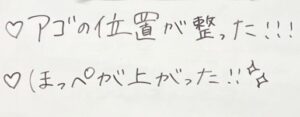 ♡アゴの位置が整った!!!
♡ほっぺが上がった!!✨